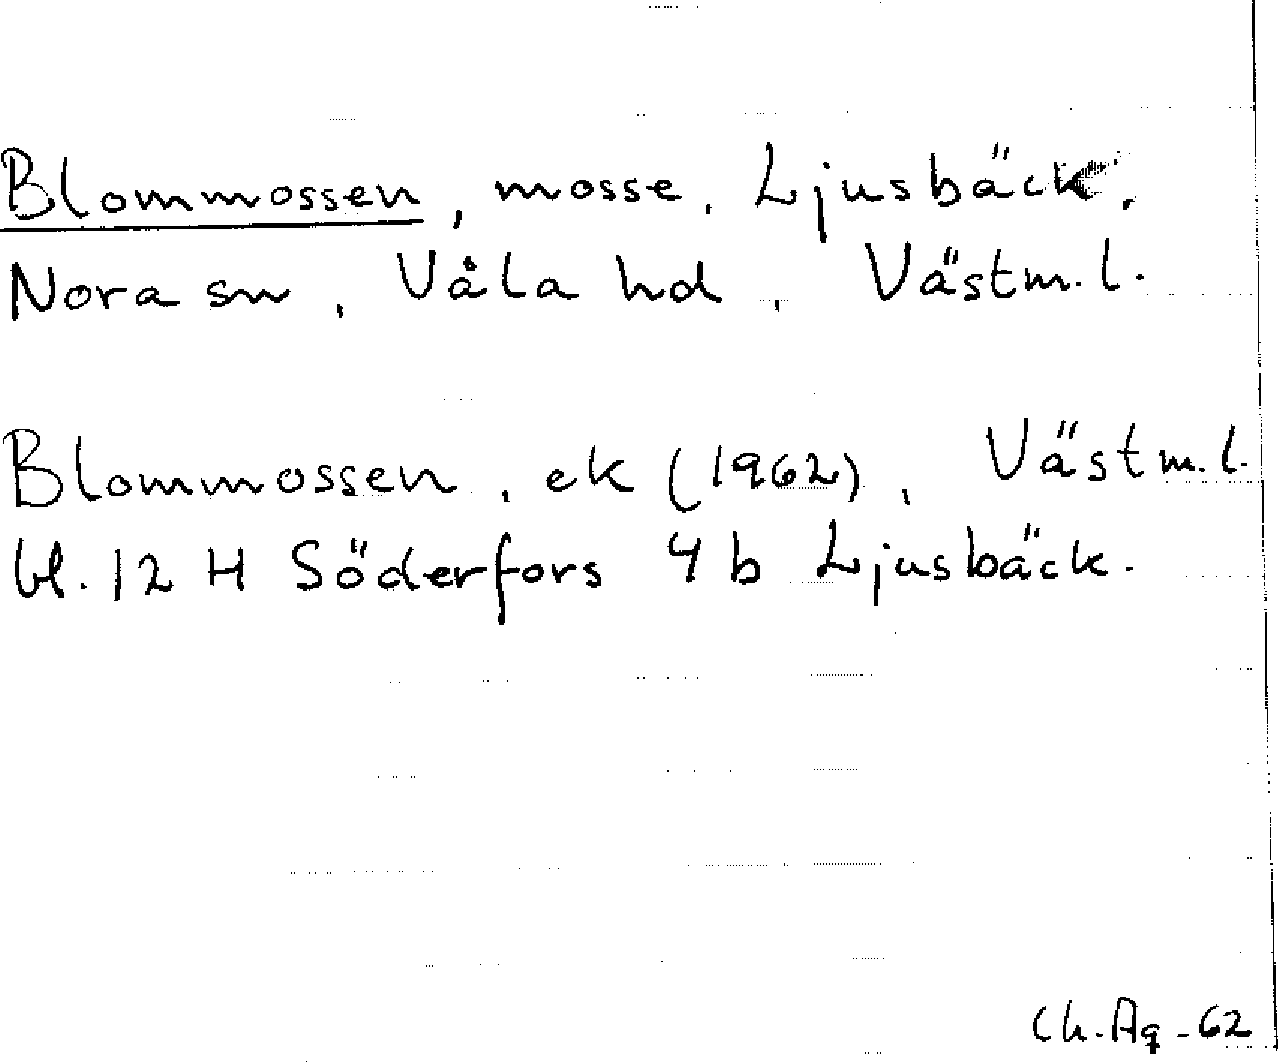 Blommossen, mosse, Ljusbäck,
Nora sn, Våla hd, Västm.l.
Blommossen, ek (1962), Västm.l.
bl. 12 H Söderfors 4 b Ljusbäck.
Ch. Ag -62